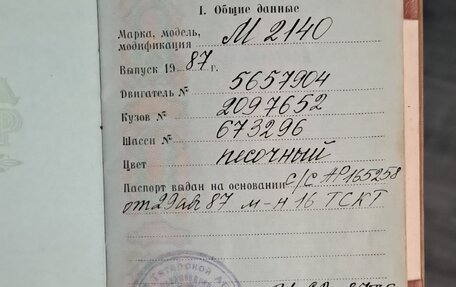 I. Общие данные
Марка, модель,
модификация М 2140
Выпуск 19 87 г.
Двигатель № 5657904
Кузов № 2097652
Шасси № 673296
Цвет песочный
Паспорт выдан на основании с/с АР 165258
от 29 ав 87 м-н 16 ТСКТ